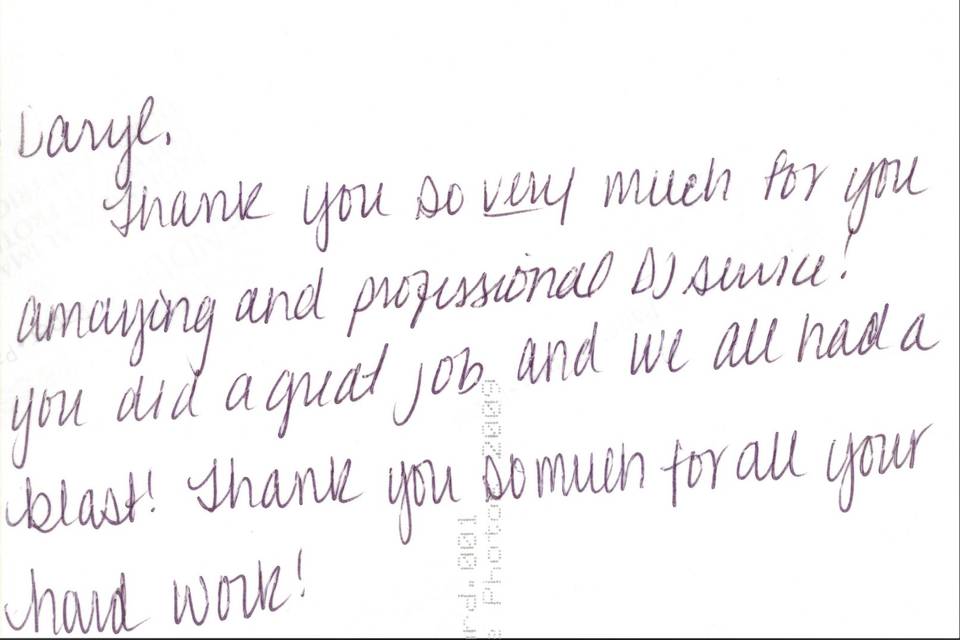 Daryl,
Thank you so very much for you
amazing and professional DJ service!
you did a great job and we all had a
blast! Thank you so much for all your
hard work!